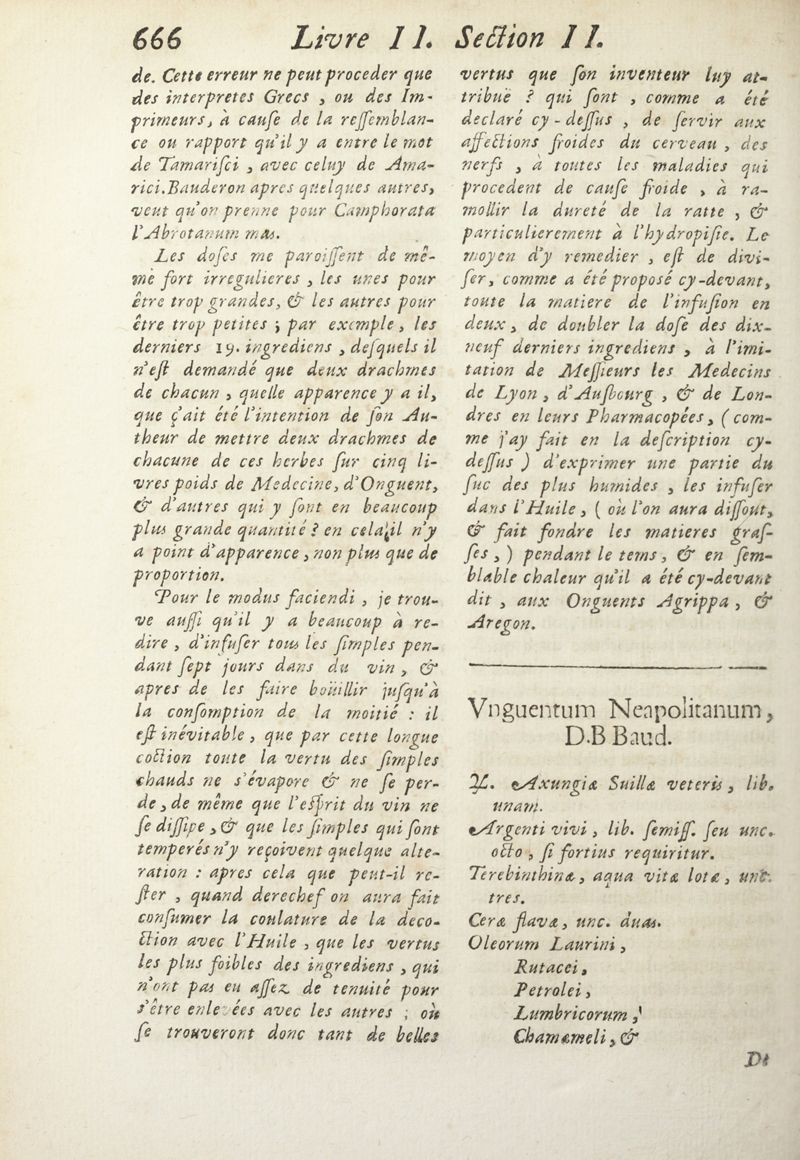 666 Livre II. Section II.
de. Cette erreur ne peut proceder que
des interpretes Grecs , ou des Im-
primeurs, à cause de la ressemblan-
ce ou rapport qu'il y a entre le mot
de Tamarisci , avec celuy de Ama-
rici. Bauderon apres quelques autres,
veut qu'on prenne pour Camphorata
l'Abrotanum mas.
Les doses me paroissent de mê-
me fort irregulieres , les unes pour
être trop grandes, & les autres pour
être trop petites ; par exemple , les
derniers 19. ingrediens , desquels il
n'est demandé que deux drachmes
de chacun , quelle apparence y a il,
que ç'ait été l'intention de son Au-
theur de mettre deux drachmes de
chacune de ces herbes sur cinq li-
vres poids de Medecine, d'Onguent,
& d'autres qui y sont en beaucoup
plus grande quantité ? en cela il n'y
a point d'apparence , non plus que de
proportion.
Pour le modus faciendi , je trou-
ve aussi qu'il y a beaucoup à re-
dire , d'infuser tous les simples pen-
dant sept jours dans du vin , &
apres de les faire boüillir jusqu'à
la consomption de la moitié : il
est inévitable , que par cette longue
coction toute la vertu des simples
chauds ne s'évapore & ne se per-
de , de même que l'esprit du vin ne
se dissipe , & que les simples qui sont
temperés n'y reçoivent quelque alte-
ration : apres cela que peut-il re-
ster , quand derechef on aura fait
consumer la coulature de la deco-
ction avec l'Huile , que les vertus
les plus foibles des ingrediens , qui
n'ont pas eu assez de tenuité pour
s'être enlevées avec les autres ; où
se trouveront donc tant de belles
vertus que son inventeur luy at-
tribuë ? qui sont , comme a été
declaré cy-dessus , de servir aux
affections froides du cerveau , des
nerfs , à toutes les maladies qui
procedent de cause froide , à ra-
mollir la dureté de la ratte , &
particulierement à l'hydropisie. Le
moyen d'y remedier , est de divi-
ser, comme a été proposé cy-devant,
toute la matiere de l'infusion en
deux , de doubler la dose des dix-
neuf derniers ingrediens , à l'imi-
tation de Messieurs les Medecins
de Lyon , d'Ausbourg , & de Lon-
dres en leurs Pharmacopées , ( com-
me j'ay fait en la description cy-
dessus ) d'exprimer une partie du
suc des plus humides , les infuser
dans l'Huile , ( où l'on aura dissout,
& fait fondre les matieres gras-
ses , ) pendant le tems , & en sem-
blable chaleur qu'il a été cy-devant
dit , aux Onguents Agrippa , &
Aregon.
Vnguentum Neapolitanum,
D.B Baud.
℞. Axungiæ Suillæ veteris , lib.
unam.
Argenti vivi , lib. semiss. seu unc.
octo , si fortius requiritur.
Terebinthinæ , aqua vitæ lotæ , unc.
tres.
Ceræ flavæ , unc. duas.
Oleorum Laurini ,
Rutacei ,
Petrolei ,
Lumbricorum ,
Chamæmeli , &
De